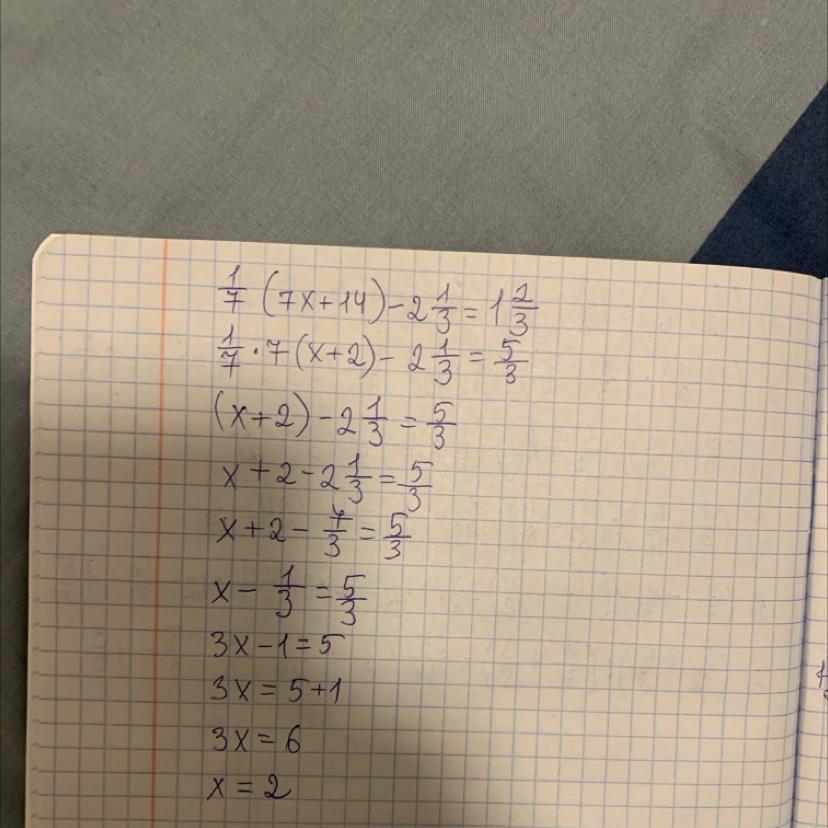 1/7 (7x+14) - 2 1/3 = 1 2/3
1/7 · 7 (x+2) - 2 1/3 = 5/3
(x+2) - 2 1/3 = 5/3
x + 2 - 2 1/3 = 5/3
x + 2 - 7/3 = 5/3
x - 1/3 = 5/3
3x - 1 = 5
3x = 5+1
3x = 6
x = 2